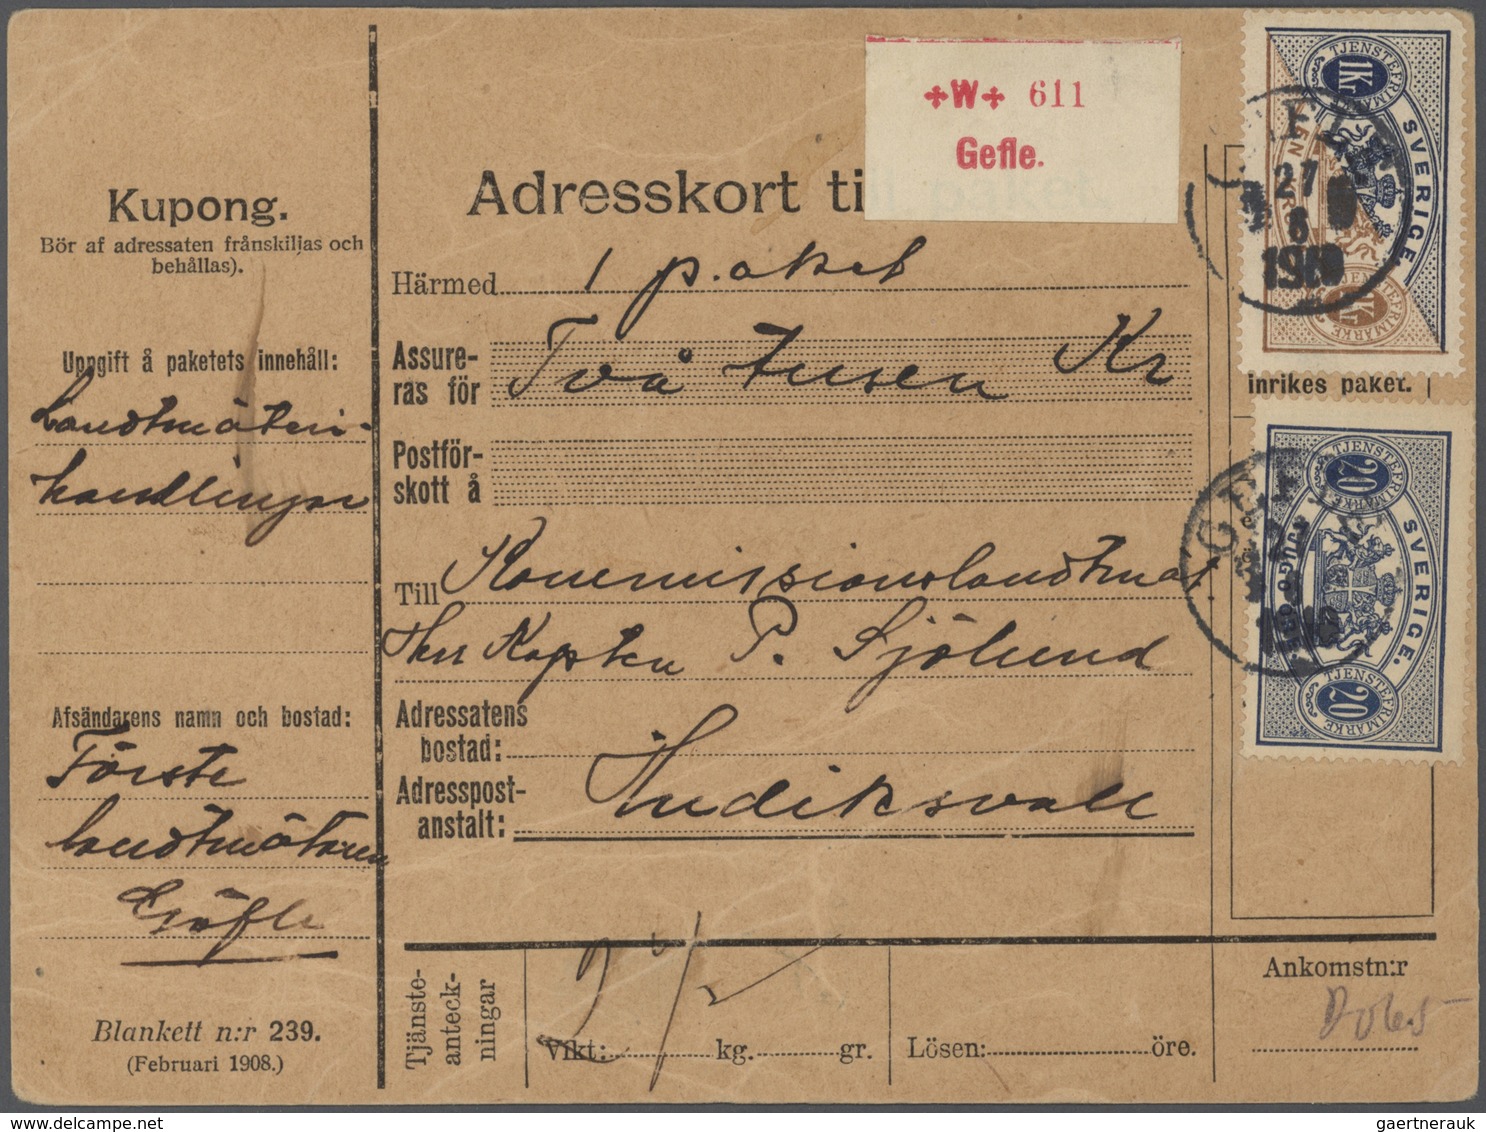 Kupong.
Bör af adressaten frånskiljas och
behållas).
Uppgift å paketets innehåll:
Landtmäteri-
handlingar
Afsändarens namn och bostad:
Förste
landtmätaren
Gäfle
Blankett n:r 239.
(Februari 1908.)
✣W✣ 611
Gefle.
Adresskort ti
Härmed 1 paket
Assure-
ras för Två tusen Kr
Postför-
skott å
Till Kommissionslandtmät
Herr Kapten P. Sjölund
Adressatens
bostad:
Adresspost-
anstalt: Hudiksvall
Tjänste-
anteck-
ningar
Vikt: kg. gr.
Lösen: öre.
Ankomstn:r
inrikes paket.
TJENSTEFRIMÄRKE
1 Kr
SVERIGE.
EN KRONA
1 Kr
TJENSTEFRIMÄRKE
GEFLE
27
6
1910
TJENSTEFRIMÄRKE
20
SVERIGE.
TJUGO ÖRE
20
TJENSTEFRIMÄRKE
GEFLE
1910
gaertnerauk ♡ delcampe.net